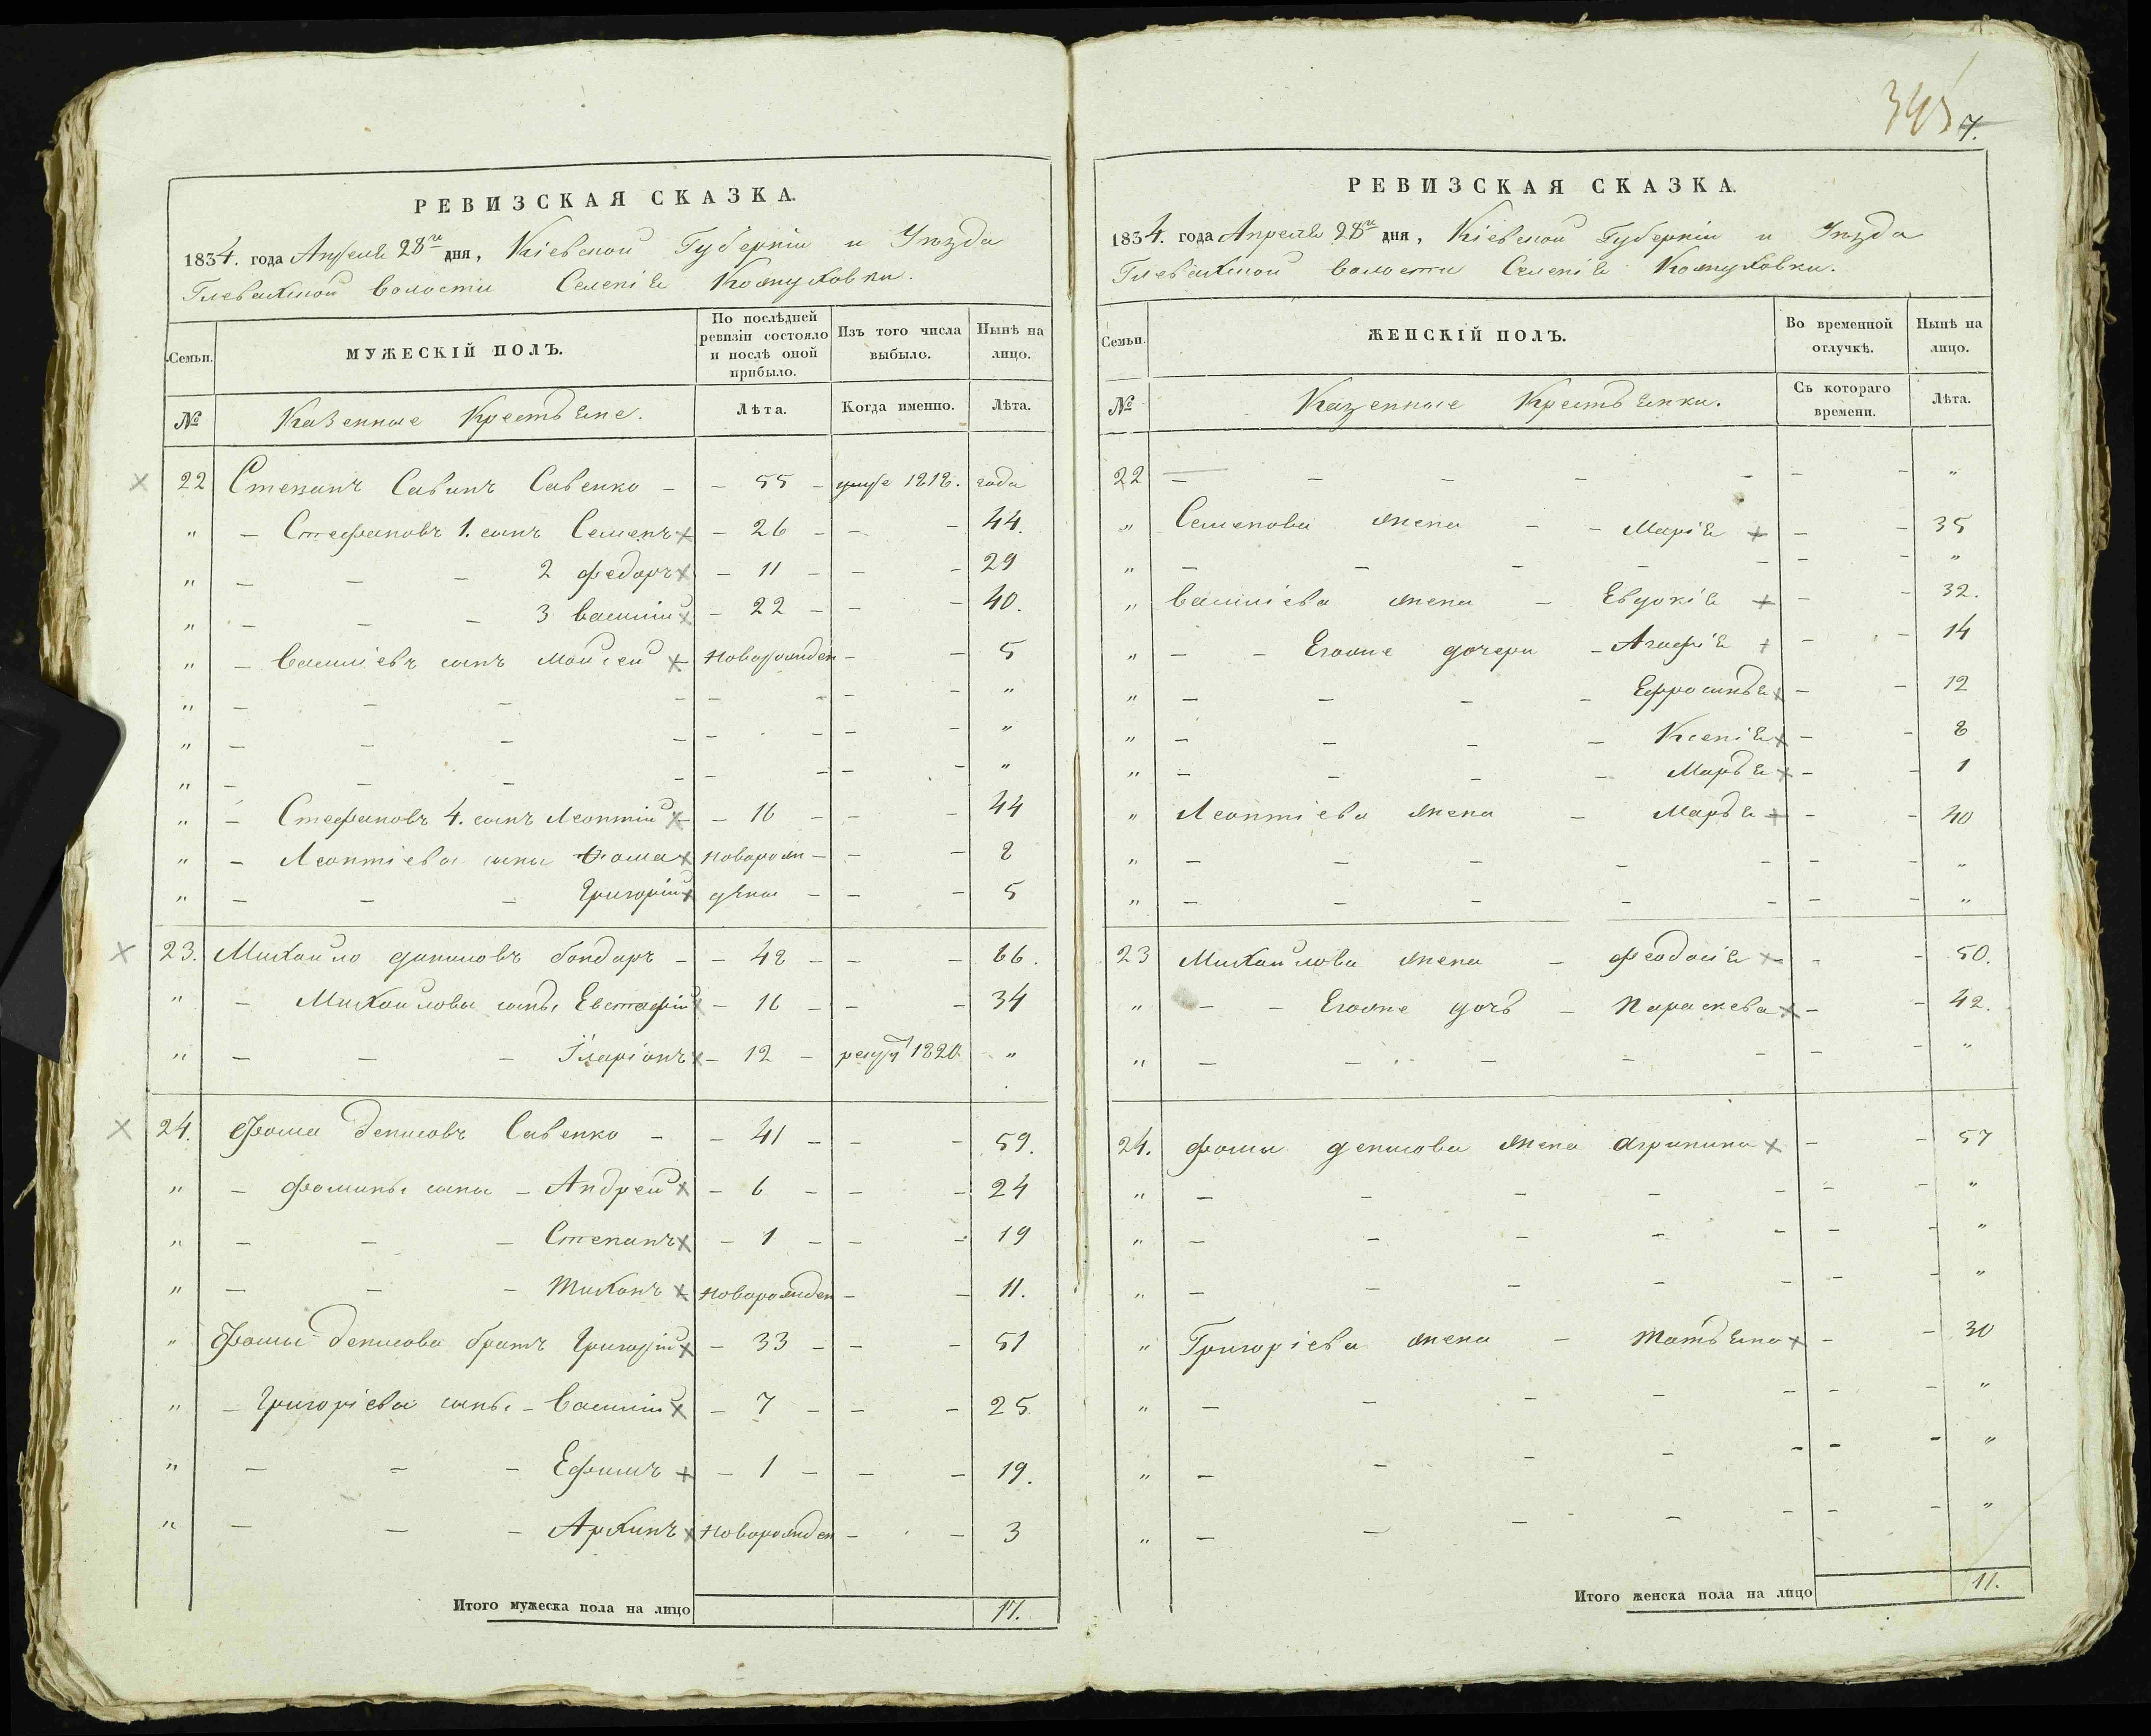 345 7.
РЕВИЗСКАЯ СКАЗКА.
1834. года Апреля 28го дня, Кіевской Губерніи и Уезда
Глевахской волости Селенія Кожуховки.
Семьи.
МУЖЕСКІЙ ПОЛЪ.
По послѣдней ревизіи состояло и послѣ оной прибыло.
Изъ того числа выбыло.
Нынѣ на лицо.
№
Казенные Крестьяне.
Лѣта.
Когда именно.
Лѣта.
22 Степанъ Савинъ Савенко - - 55 - умре 1818. года
" - Стефановъ 1. сынъ Семенъ - 26 - - - 44.
" - - - 2 федоръ - 11 - - - 29
" - - - 3 василій - 22 - - - 40.
" - василіевъ сынъ Мойсей новорожден - - 5
" - - - - - - - - "
" - - - - - - - - "
" - - - - - - - - "
" - Стефановъ 4. сынъ Леонтій - 16 - - - 44
" - Леонтіева сыны Фома новорож - - - 8
" - - - Григорій дены - - - 5
23. Михайло даниловъ бондарь - - 48 - - - 66.
" - Михайлова сынъ Евстафій - 16 - - - 34
" - - - Іларіонъ - 12 - рекрут 1820 "
24. Фома Денисовъ Савенко - - 41 - - - 59.
" - фомины сыны - Андрей - 6 - - - 24
" - - - Степанъ - 1 - - - 19
" - - - Тихонъ новорожден - - 11.
" Фомы Денисова братъ Григорій - 33 - - - 51
" - Григоріева сынъ - Василій - 7 - - - 25.
" - - - Ефимъ - 1 - - - 19.
" - - - Архипъ новорожден - - 3
Итого мужеска пола на лицо 17.
РЕВИЗСКАЯ СКАЗКА.
1834. года Апреля 28го дня, Кіевской Губерніи и Уезда
Глевахской волости Селенія Кожуховки.
Семьи.
ЖЕНСКІЙ ПОЛЪ.
Во временной отлучкѣ.
Нынѣ на лицо.
№
Казенные Крестьянки.
Съ котораго времени.
Лѣта.
22 - - - - - - - "
" Семенова жена - - Марія - - 35
" - - - - - - - "
" василіева жена - Евдокія - - 32.
" - - Егоже дочери - Агафія - - 14
" - - - - Ефросинья - - 12
" - - - - Ксенія - - 8
" - - - - Марья - - 1
" Леонтіева жена - Марья - - 40
" - - - - - - - "
" - - - - - - - "
23 Михайлова жена - феодосія - - 50.
" - - Егоже дочь - Параскева - - 42.
" - - - - - - - "
24. фомы денисова жена агрипина - - 57
" - - - - - - - "
" - - - - - - - "
" - - - - - - - "
" Григоріева жена - татьяна - - 30
" - - - - - - - "
" - - - - - - - "
" - - - - - - - "
Итого женска пола на лицо 11.